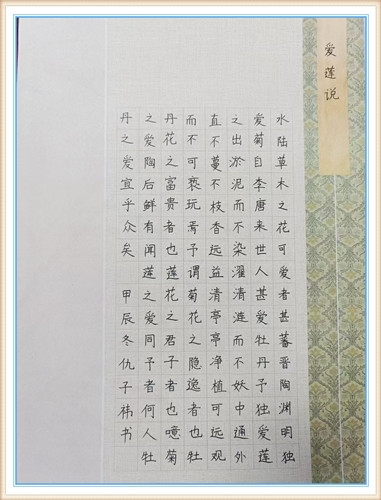 爱莲说
水陆草木之花可爱者甚蕃晋陶渊明独
爱菊自李唐来世人甚爱牡丹予独爱莲
之出淤泥而不染濯清涟而不妖中通外
直不蔓不枝香远益清亭亭净植可远观
而不可亵玩焉予谓菊花之隐逸者也牡
丹花之富贵者也莲花之君子者也噫菊
之爱陶后鲜有闻莲之爱同予者何人牡
丹之爱宜乎众矣 甲辰冬仇子祎书